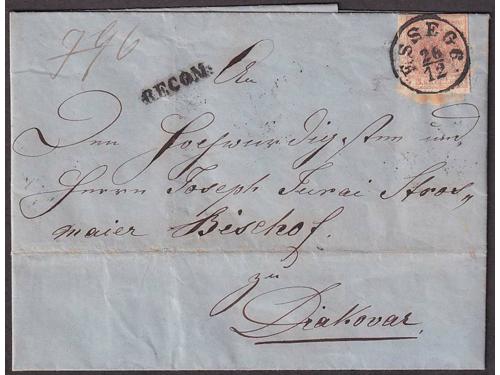 796
RECOM.
ESSEGG.
26
12
An
Den Hochwürdigsten und
Herrn Joseph Jurai Stros„
maier Bischof.
zu
Diakovar.